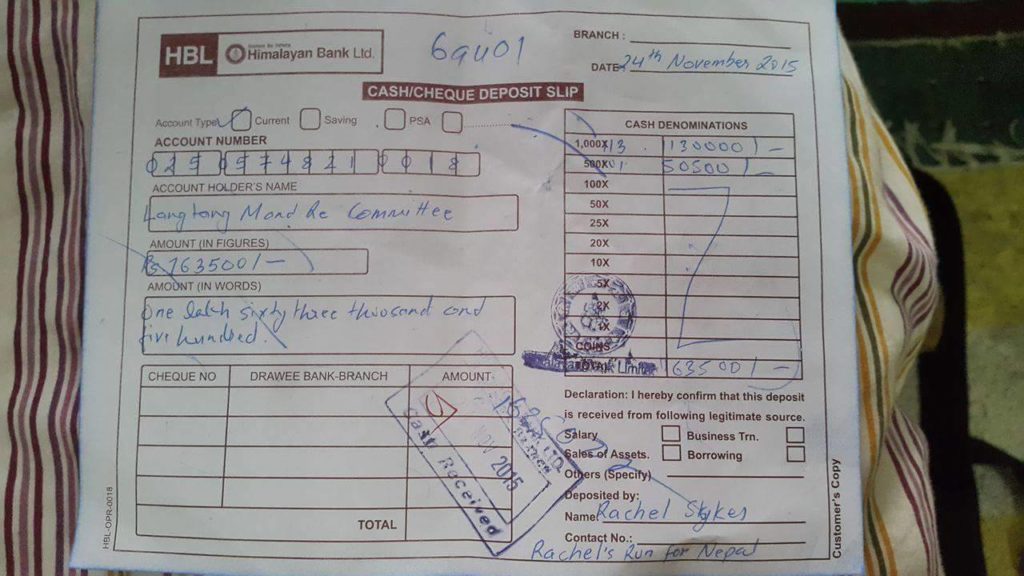 HBL Himalayan Bank Ltd.
BRANCH :
DATE 24th November 2015
CASH/CHEQUE DEPOSIT SLIP
Account Type Current Saving PSA
ACCOUNT NUMBER
ACCOUNT HOLDER'S NAME
Langtang Mand Re Committee
AMOUNT (IN FIGURES)
Rs 163500/-
AMOUNT (IN WORDS)
One lakh sixty three thousand and
five hundred.
CASH DENOMINATIONS
1,000X 113 113000/-
500X 101 50500/-
100X
50X
25X
20X
10X
5X
2X
1X
COINS
163500/-
CHEQUE NO DRAWEE BANK-BRANCH AMOUNT
TOTAL
Cash Received
NOV 2015
Declaration: I hereby confirm that this deposit
is received from following legitimate source.
Salary Business Trn.
Sales of Assets. Borrowing
Others (Specify)
Deposited by:
Name: Rachel Sykes
Contact No.:
Rachel's Run for Nepal
HBL-OPR-0018
Customer's Copy